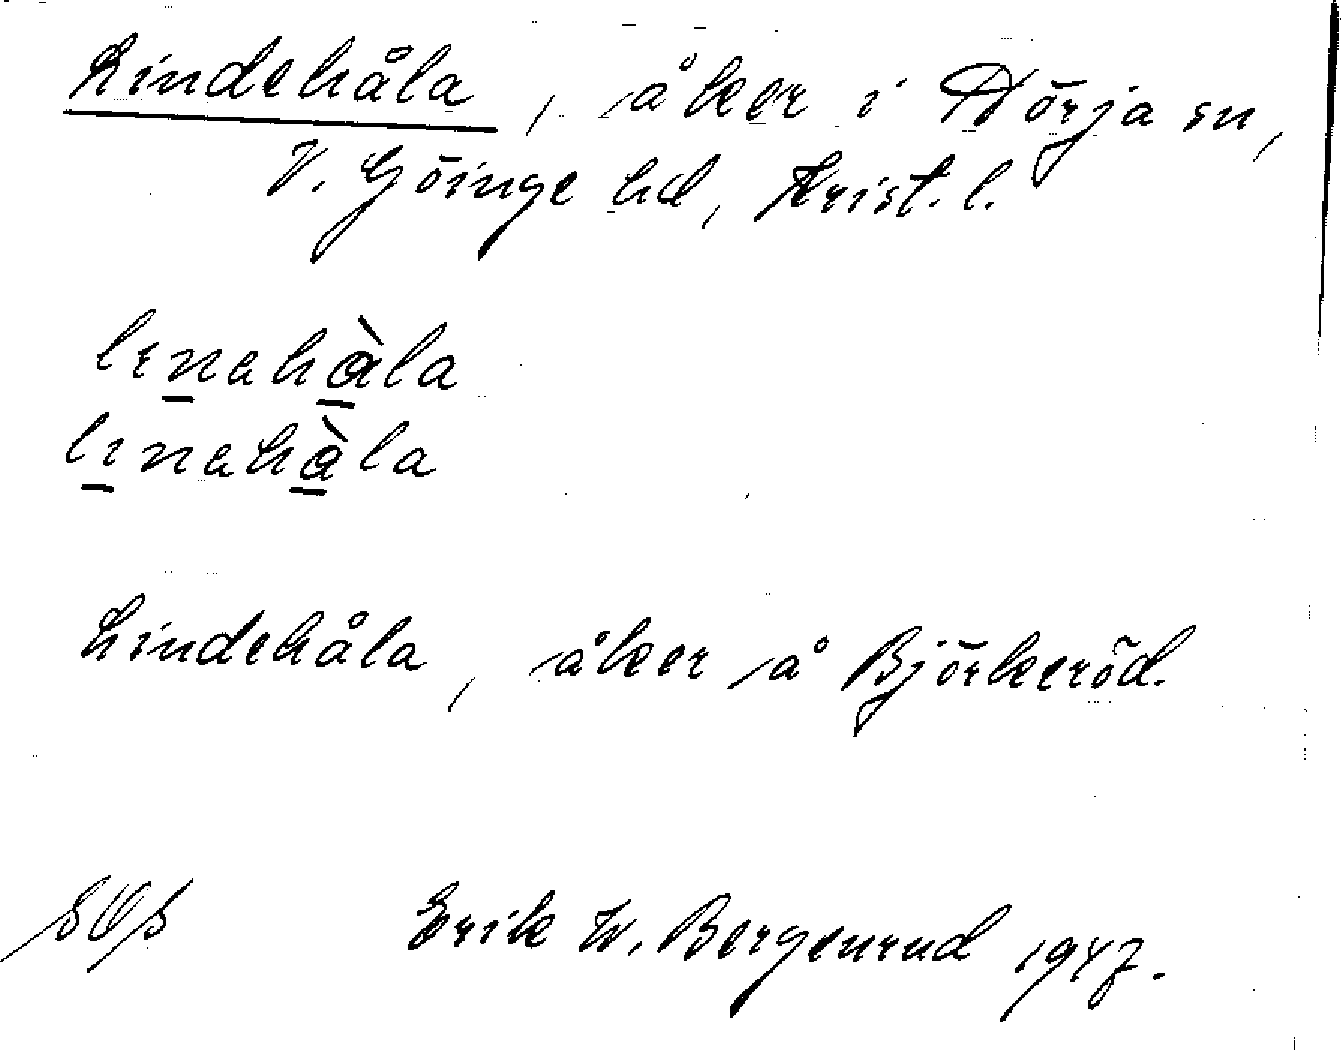 Lindehåla, åker i Nörja sn,
V. Göinge hd, Krist. l.
lɪnahàla
lɪnahàla
Lindehåla, åker å Björkeröd.
Erik W. Bergenrud 1947.